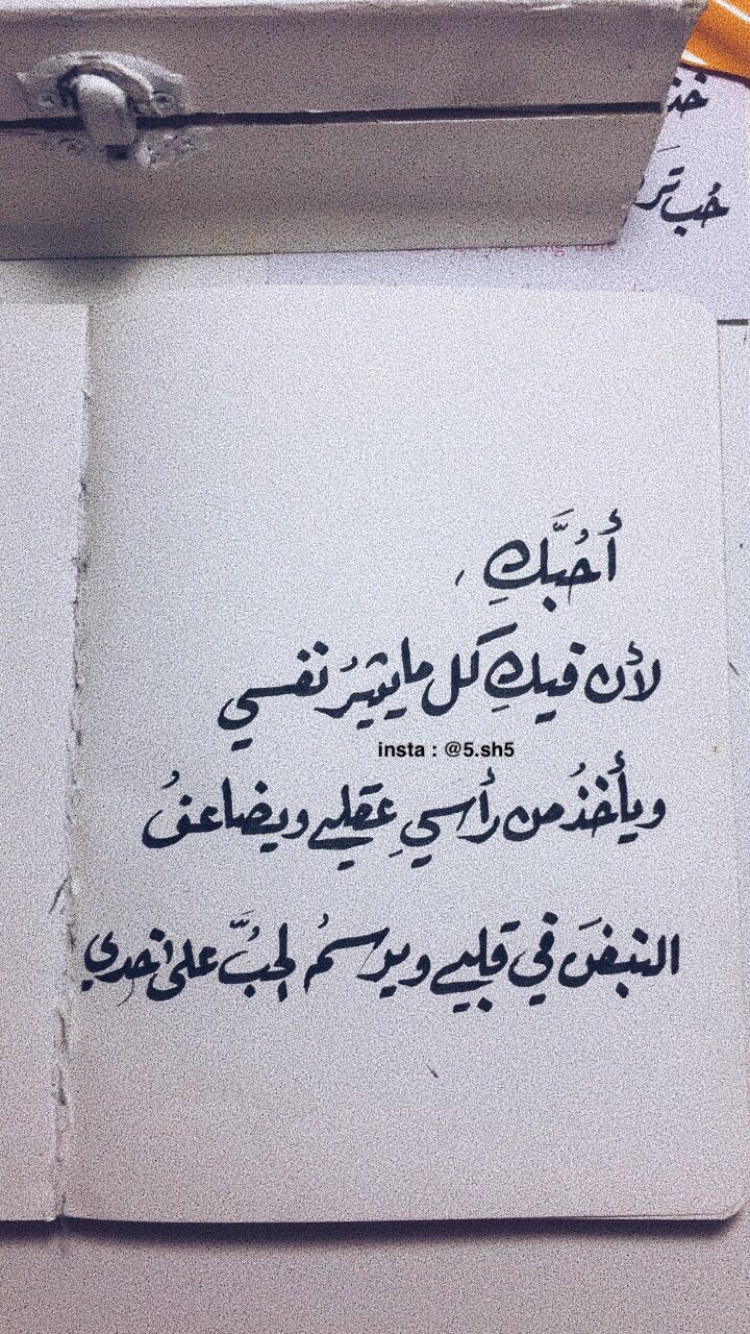 خذ
حُب تر
أُحُبَّكِ ,
لأن فيكِ كل ما يثيرُ نفسي
insta : @5.sh5
ويأخذُ من رأسي عقلي ويضاعفُ
النبضَ في قلبي ويرسمُ الحُبَّ على خدي